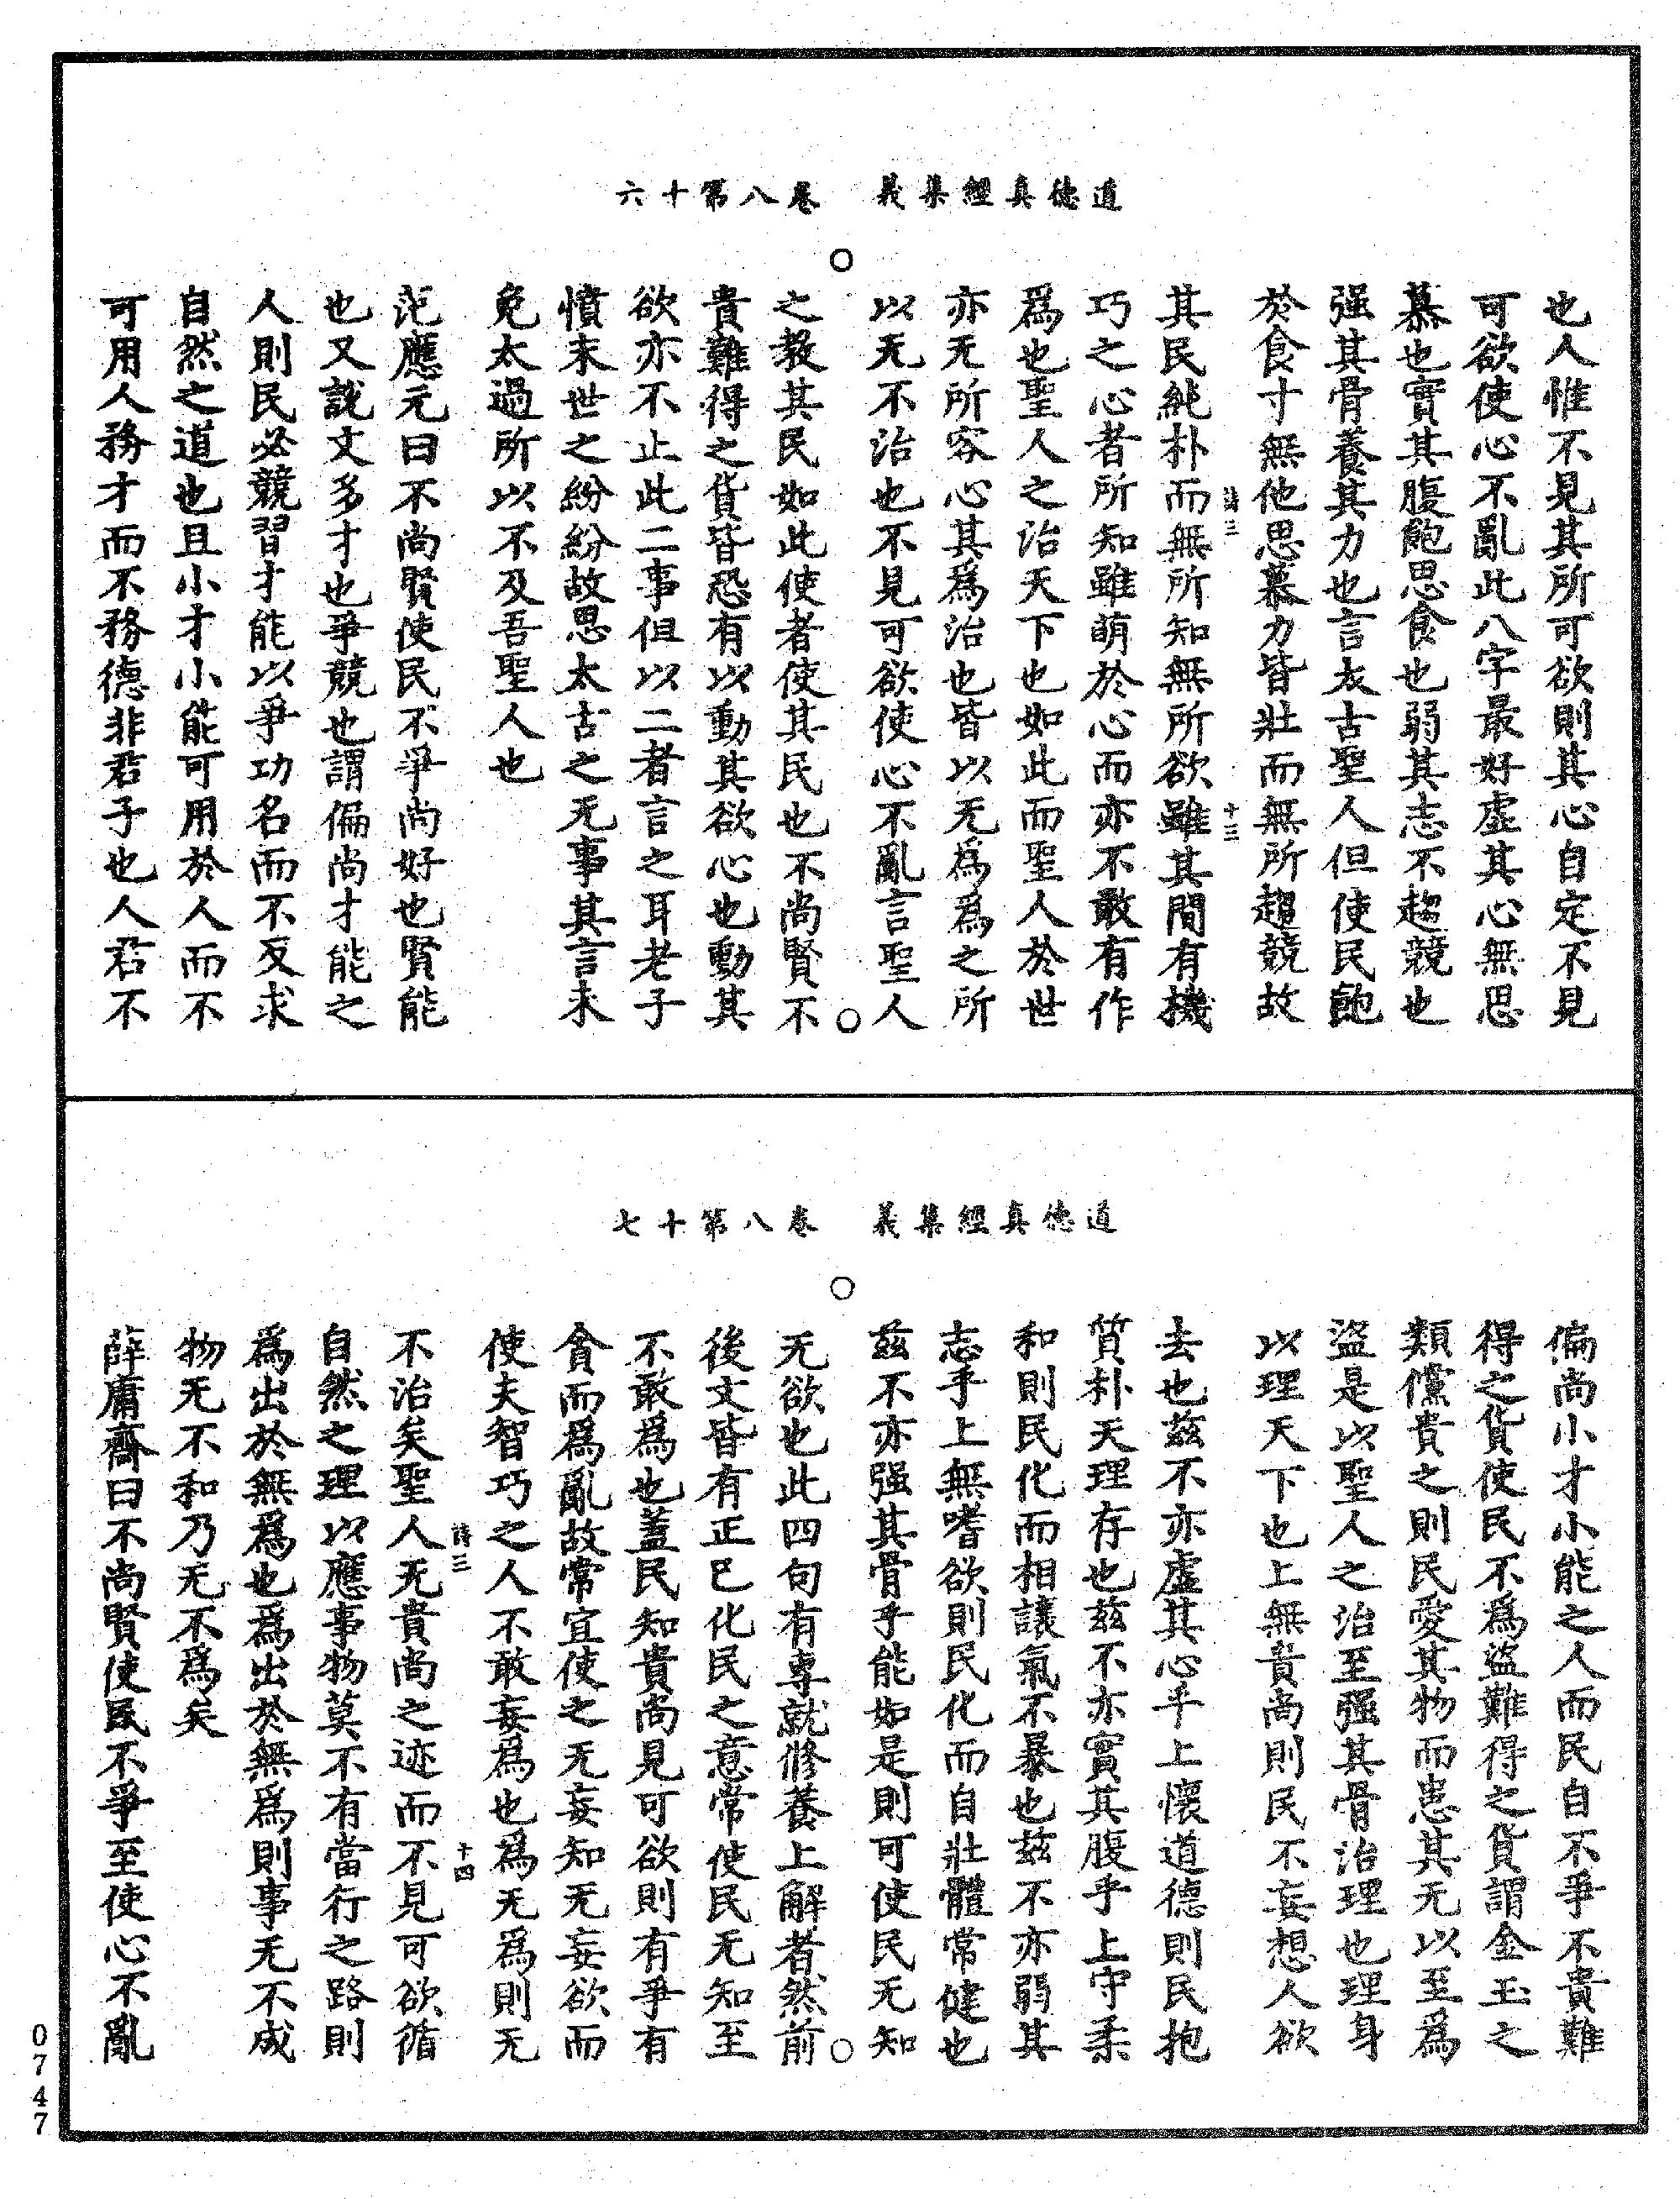 道德真經集義　卷八第十六
也人惟不見其所可欲則其心自定不見
可欲使心不亂此八字最好虛其心無思
慕也實其腹飽思食也弱其志不趨競也
强其骨養其力也言太古聖人但使民飽
於食寸無他思慕力皆壯而無所趨競故
其民純朴而無所知無所欲雖其間有機
詩三　十三
巧之心者所知雖萌於心而亦不敢有作
爲也聖人之治天下也如此而聖人於世
亦无所容心其爲治也皆以无爲爲之所
以无不治也不見可欲使心不亂言聖人
○　○
之教其民如此使者使其民也不尚賢不
貴難得之貨皆恐有以動其欲心也動其
欲亦不止此二事但以二者言之耳老子
憤末世之紛紛故思太古之无事其言未
免太過所以不及吾聖人也
范應元曰不尚賢使民不爭尚好也賢能
也又說文多才也爭競也謂偏尚才能之
人則民必競習才能以爭功名而不反求
自然之道也且小才小能可用於人而不
可用人務才而不務德非君子也人君不
道德真經集義　卷八第十七
偏尚小才小能之人而民自不爭不貴難
得之貨使民不爲盜難得之貨謂金玉之
類儻貴之則民愛其物而患其无以至爲
盜是以聖人之治至强其骨治理也理身
以理天下也上無貴尚則民不妄想人欲
去也茲不亦虛其心乎上懷道德則民抱
質朴天理存也茲不亦實其腹乎上守柔
和則民化而相讓氣不暴也茲不亦弱其
志乎上無嗜欲則民化而自壯體常健也
茲不亦强其骨乎能如是則可使民无知
○　○
无欲也此四句有專就修養上解者然前
後文皆有正已化民之意常使民无知至
不敢爲也蓋民知貴尚見可欲則有爭有
貪而爲亂故常宜使之无妄知无妄欲而
使夫智巧之人不敢妄爲也爲无爲則无
詩三　十四
不治矣聖人无貴尚之迹而不見可欲循
自然之理以應事物莫不有當行之路則
爲出於無爲也爲出於無爲則事无不成
物无不和乃无不爲矣
薛庸齋曰不尚賢使民不爭至使心不亂
0747